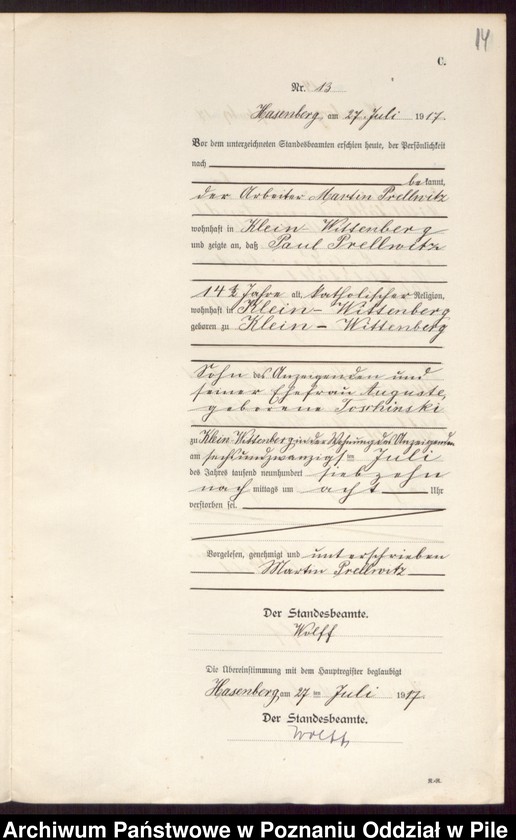 14
C.
Nr. 13
Hasenberg am 27 Juli 1917.
Vor dem unterzeichneten Standesbeamten erschien heute, der Persönlichkeit
nach
bekannt,
der Arbeiter Martin Prellwitz
wohnhaft in Klein Wittenberg
und zeigte an, daß Paul Prellwitz
14½ Jahre alt, katholischer Religion,
wohnhaft in Klein-Wittenberg
geboren zu Klein-Wittenberg
Sohn des Anzeigenden und
seiner Ehefrau Auguste,
geborene Toschinski
zu Klein-Wittenberg in der Wohnung des Anzeigenden
am sechsundzwanzigsten Juli
des Jahres tausend neunhundert siebzehn
nach mittags um acht Uhr
verstorben sei.
Vorgelesen, genehmigt und unterschrieben
Martin Prellwitz
Der Standesbeamte.
Wolff
Die Übereinstimmung mit dem Hauptregister beglaubigt
Hasenberg am 27 ten Juli 1917.
Der Standesbeamte.
Wolff
K.-K.
Archiwum Państwowe w Poznaniu Oddział w Pile